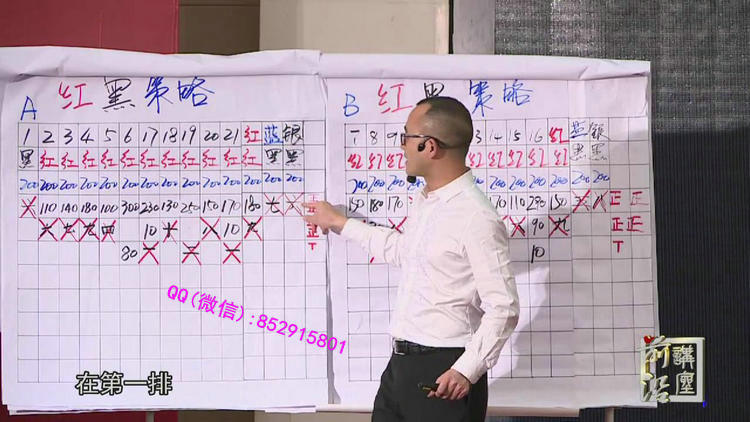 A 红黑策略
1 2 3 4 5 6 17 18 19 20 21 红 蓝 银
黑 红 红 红 红 红 红 红 红 红 红 红 黑 黑
200 200 200 200 200 200 200 200 200 200 200 200 200 200
110 140 180 100 300 230 130 250 150 170 180 七 正
四 10 10 九 正
80 T
B 红黑策略
7 8 9 3 14 15 16 红 蓝 银
红 红 红 红 红 红 红 红 黑 黑
200 200 200 200 200 200 200 200 200 200
150 180 170 110 290 150 正 正
90 九 正 正
10 T
QQ(微信):852915801
前沿講座
在第一排